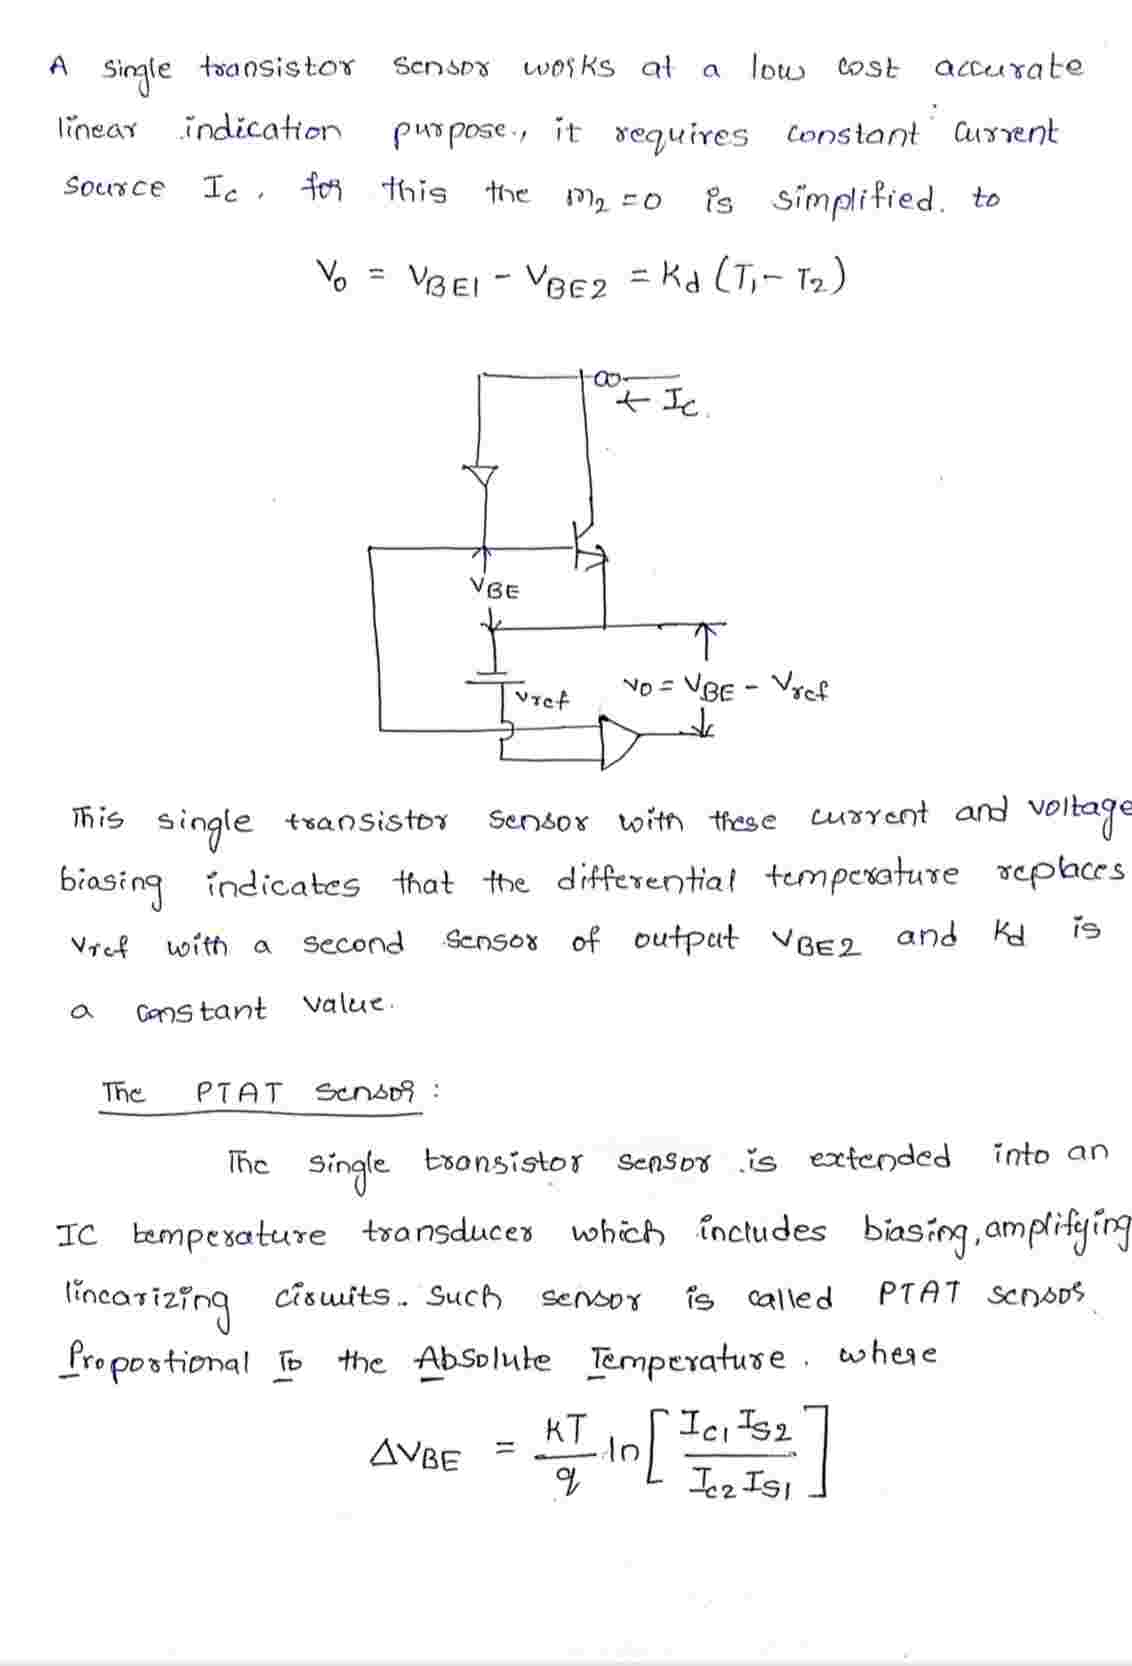 A single transistor sensor works at a low cost accurate
linear indication purpose., it requires constant current
source Ic, for this the m₂ = 0 is simplified. to
V₀ = VBE1 - VBE2 = Kd (T₁ - T₂)
← Ic.
VBE
Vref
V₀ = VBE - Vref
This single transistor sensor with these current and voltage
biasing indicates that the differential temperature replaces
Vref with a second sensor of output VBE2 and Kd is
a constant value.
The PTAT Sensor :
The single transistor sensor is extended into an
IC temperature transducer which includes biasing, amplifying
linearizing ciruits. Such sensor is called PTAT sensor
Proportional To the Absolute Temperature. where
ΔVBE = KT/q ln [Ic1 Is2 / Ic2 Is1]